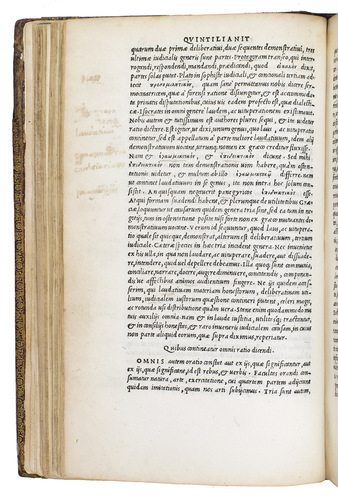 QVINTILIANI
quarum duæ primæ deliberatiui, duæ sequentes demonstratiui, tres
ultimæ iudicialis generis sunt partes. Protagoram transeo, qui inter-
rogandi, respondendi, mandandi, præcandi, quod
partes solas putet. Plato in sophiste iudiciali, et concionali tertiam ad-
iecit quam sane permittamus nobis dicere ser-
mocinatricem, quæ à forensi ratione disiungitur, et est accommoda-
ta priuatis disputationibus, cuius uis eadem profecto est, quæ dialecti-
cæ. Isocrates in omni genere laudem, ac uituperationem existimauit.
Nobis autem et tutissimum est auctores plures sequi, et ita uidetur
ratio dictare. Est igitur, ut dixi, unum genus, quo laus, ac uituperatio
continetur, sed est appellatum à parte meliore laudatiuum, idem alij
demonstratiuum uocant, utrunque nomen ex græco creditur fluxisse.
Nam et ἐγκωμιαστικὸν, dicunt. Sed mihi
non tam demonstrationis uim habere, quàm osten-
tationis uidetur, et multum ab illo differre. nam
ut continet laudatiuum in se genus, ita non intra hoc solum con-
sistit. An quisquam negauerit panegyricos esse.
Atqui formam suadendi habent, et plerunque de utilitatibus Græ-
ciæ loquuntur ut causarum quidem genera tria sint, sed ea tum in ne-
gotijs, tum in ostentatione posita: nisi forte non ex græco mutuantes de-
monstratiuum uocant. Verum id sequuntur, quod laus, ac uitupera-
tio quale sit quicque, demonstrat, alterum est deliberatiuum, tertium
iudiciale. Cæteræ species in hæc tria incidunt genera. Nec inuenietur
ex his ulla, in qua non laudare, ac uituperare, suadere, aut dissuade-
re, intendere, quid uel depellere debeamus. Illa quoque sunt communia,
conciliare, narrare, docere, augere, diminuere, concitandis, componen-
dis'ue affectibus animos audientium fingere. Ne ijs quidem assen-
serim, qui laudatiuam materiam honestorum, deliberatiuam uti-
lium, iudicialem iustorum quæstione contineri putant, celeri magis,
ac rotunda usi distributione quàm uera. Stant enim quodammodo mu-
tuis auxilijs omnia. nam et in laude iustitia, utilitas'que tractatur,
et in consilijs honestas, et raro inueneris iudicialem causam, in cuius
non parte aliquid eorum, quæ supra diximus, reperiatur.
Quibus contineatur omnis ratio dicendi.
OMNIS autem oratio constat aut ex ijs, quæ significantur, aut
ex ijs, quæ significant, id est rebus, et uerbis. Facultas orandi con-
sumatur natura, arte, exercitatione, cui quartam partem adijciunt
quidam imitationis, quam nos arti subijcimus. Tria sunt autem,